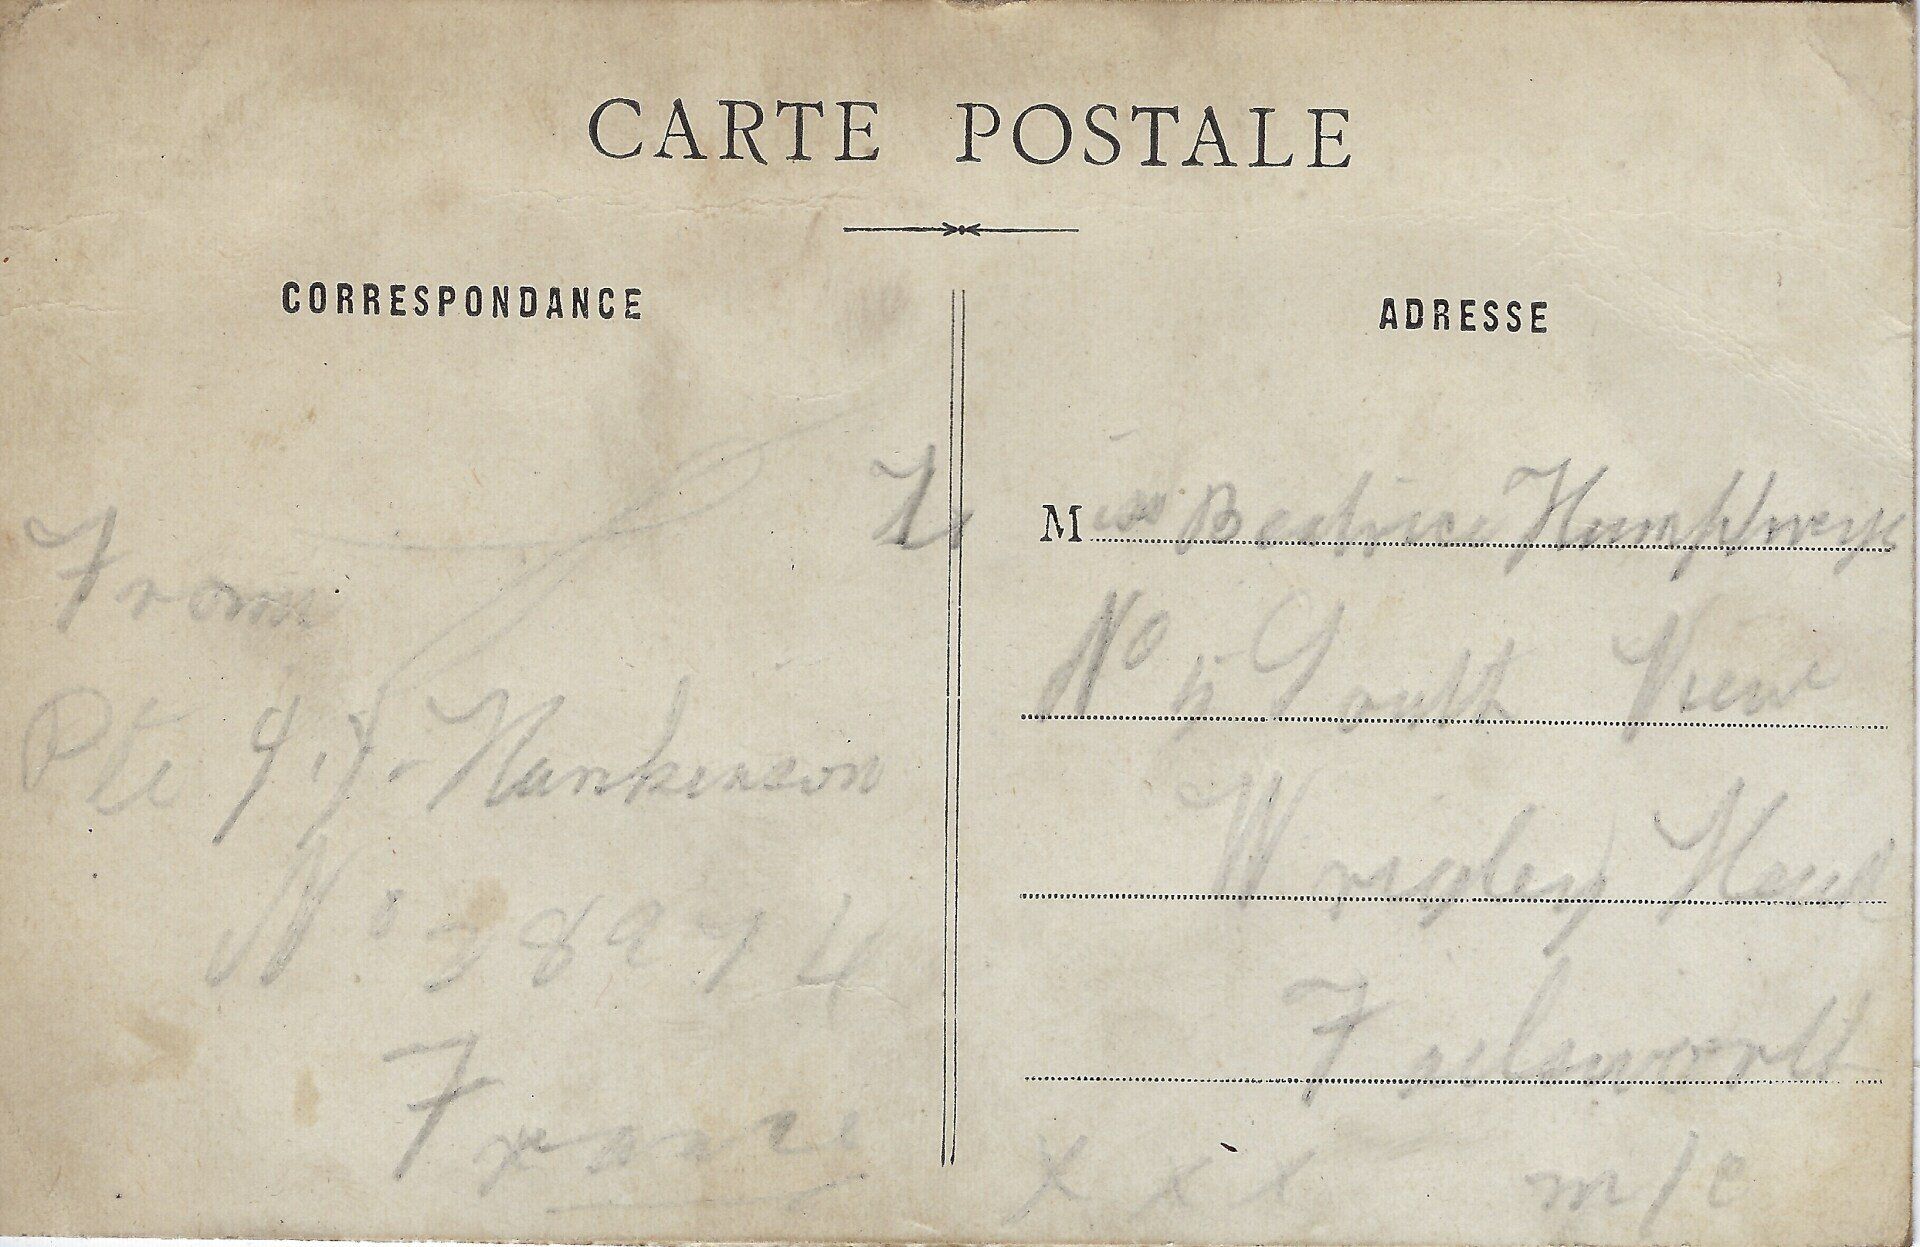 CARTE POSTALE
CORRESPONDANCE
From
Pte J. J. Hankinson
No 38974
France
ADRESSE
To Miss Beatrice Humphreys
No 5 South View
Wrigley Head
Failsworth
x x x m/c